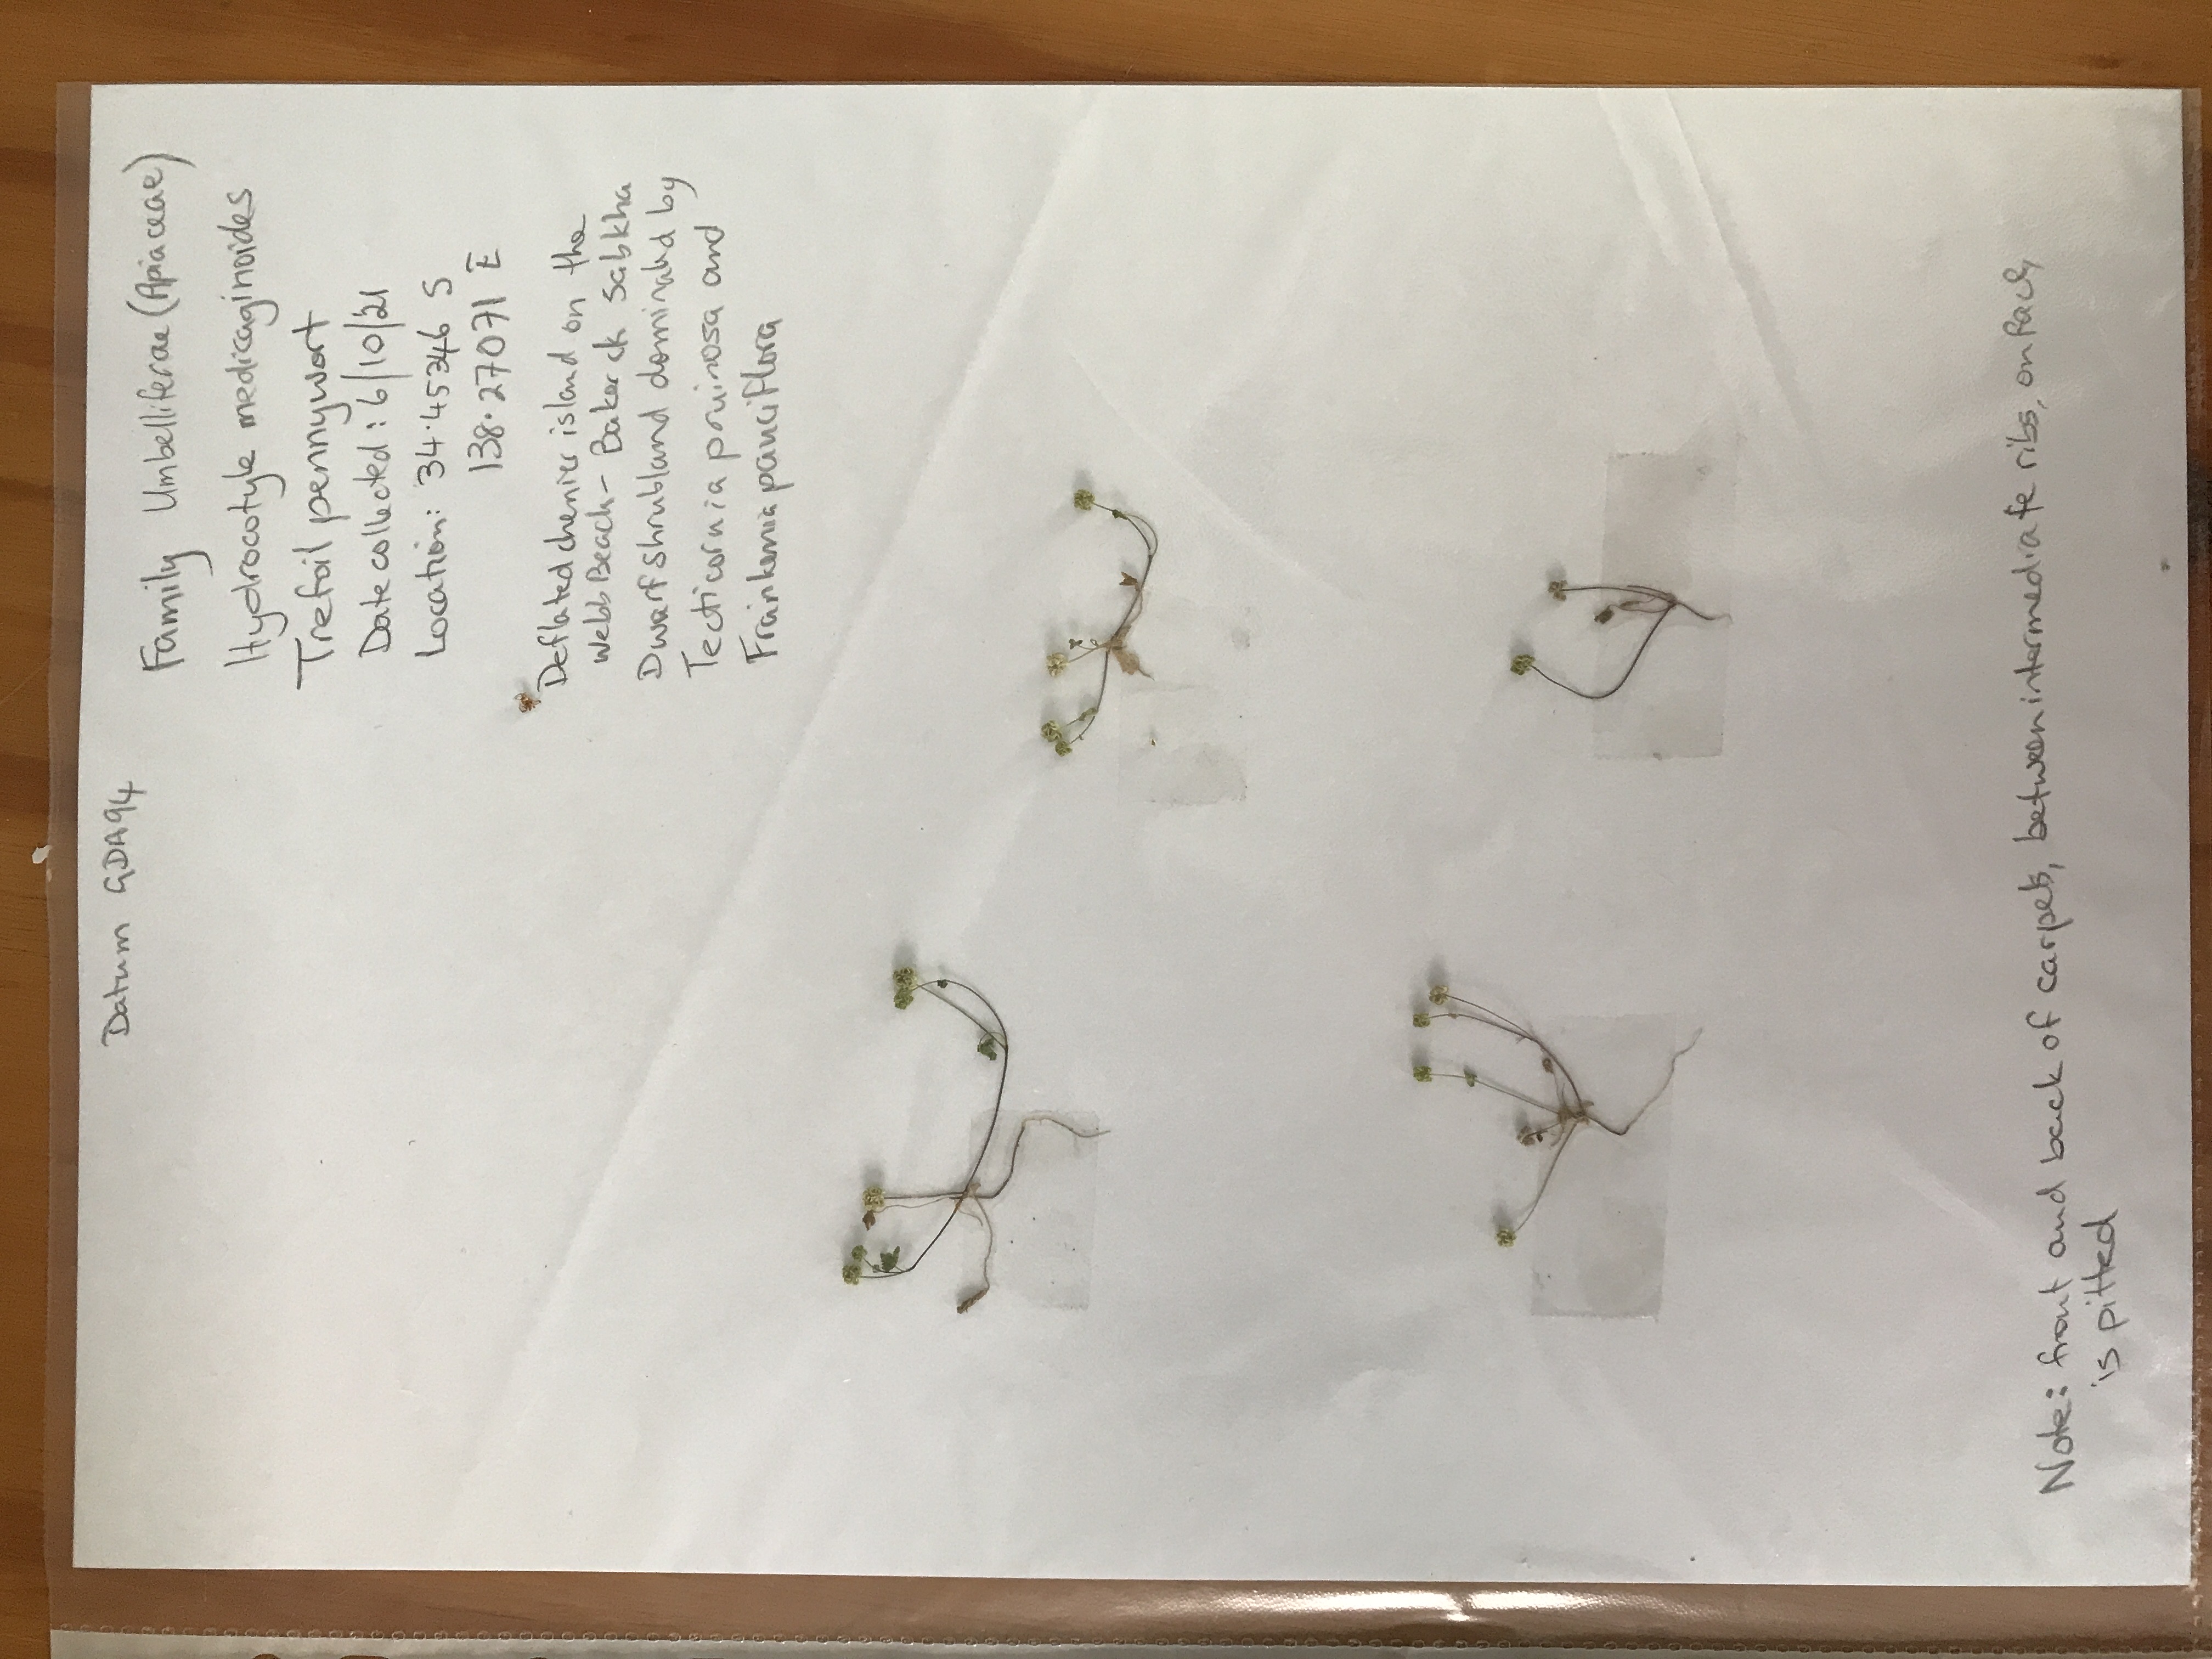 Datum GDA94
Family Umbelliferae (Apiaceae)
Hydrocotyle medicaginoides
Trefoil pennywort
Date collected: 6/10/'21
Location: 34.45346 S
138.27071 E
Deflated chenier island on the
Webb Beach - Baker ck Sabkha
Dwarf shrubland dominated by
Tecticornia pruinosa and
Frankenia pauciflora
Note: front and back of carpels, between intermediate ribs, on face,
is pitted